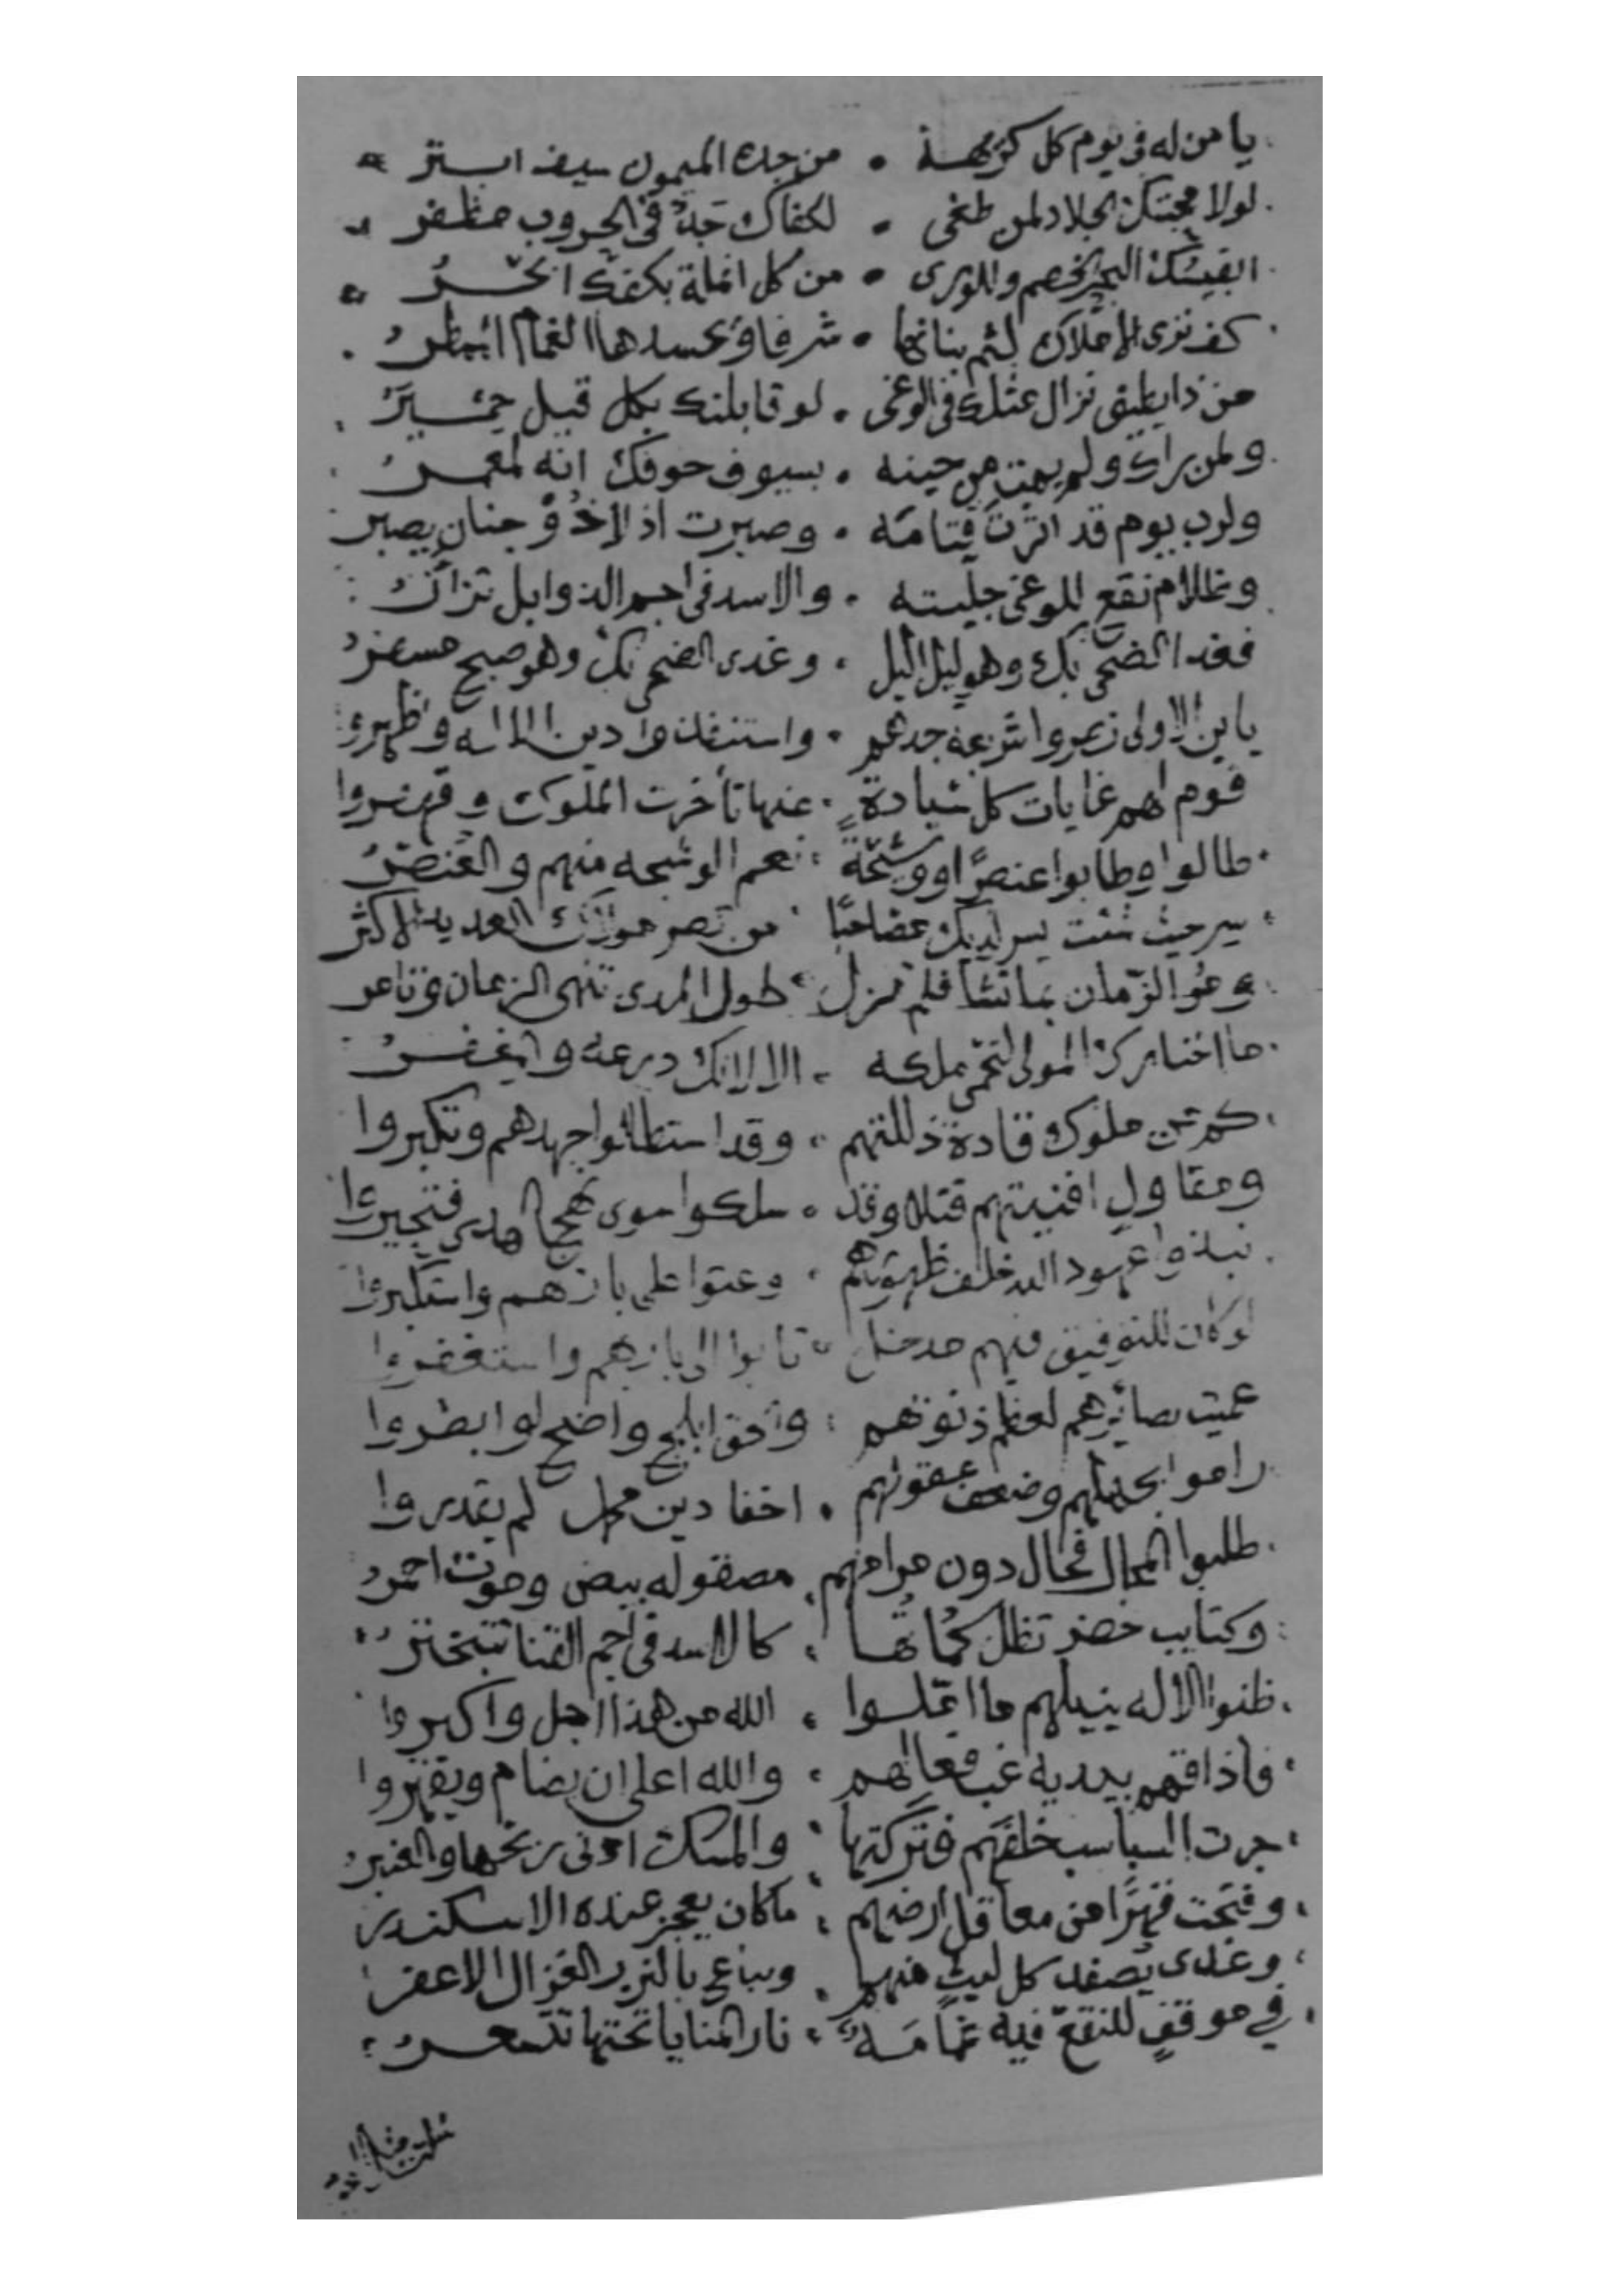 يا من له في يوم كل كريهة • من جده الميمون سيف ابتر
لولا محبتك الجلاد لمن طغى • لكفاك جد في الحروب مظفر
البحر الخضم وللورى • من كل انملة بكفك ابحر
كف ترى الاملاك لثم بنانها • شرفا ويحسدها الغمام الممطر
من ذا يطيق نزال مثلك في الوغى • لو قابلتك بكل قبيل حمير
ولمن يراك ولم يمت من حينه • بسيوف خوفك انه لمعمر
ولرب يوم قد اثرت قتامه • وصبرت اذ لا ذو جنان يصبر
وظلام نقع للوغى جليته • والاسد في اجم الذوابل تزأر
فغدا الضحى بك وهو ليل اليل • وغدى الضحى بك وهو صبح مسفر
يا بن الاولى شرعة جدهم • واستنقذوا دين الاله واظهروا
قوم لهم غايات كل سيادةٍ • عنها تأخرت الملوك وقهقروا
طالوا وطابوا عنصرًا ووشيجةً • نعم الوشيجه منهم والعنصر
سر حيث شئت يسر لديك مصاحبًا • من نصر مولاك العديد الاكثر
الزمان بما تشا فلم تزل • طول المدى تنهى الزمان وتامر
ما اختارك المولى لتحمي ملكه • الا لانك درعه والمغفر
كم من ملوك قادة ذللتهم • وقد استطالوا جهدهم وتكبروا
ومقاول افنيتهم قتلا وقد • سلكوا سوى نهج الهدى فتحيروا
نبذوا عهود الله خلف ظهورهم • وعتوا على بارئهم واستكبروا
لو كان للتوفيق فيهم مدخل • تابوا الى بارئهم واستغفروا
عميت بصائرهم لعظم ذنوبهم • والحق ابلج واضح لو ابصروا
راموا بجهلهم وضعف عقولهم • اخفا دين محمد لم يقدروا
طلبوا المحال فحال دون مرامهم • مصقوله بيض وموت احمر
وكتايب خضر تظل كماتها • كالاسد في اجم القنا تتبختر
ظنوا الاله ينيلهم ما املوا • الله من هذا اجل واكبر
فاذاقهم بيديه غب فعالهم • والله اعلى ان يضام ويقهروا
جرت السباسب خلفهم فتركتها • والمسك ادنى ريحها والعنبر
وفتحت قهرًا من معاقل ارضهم • ما كان يعجز عنده الاسكندر
وغدى يصفد كل ليث منهم • ويباع بالنزر الغزال الاعفر
في موقفٍ للنقع فيه غمامة • نار المنايا تحتها تتسعر